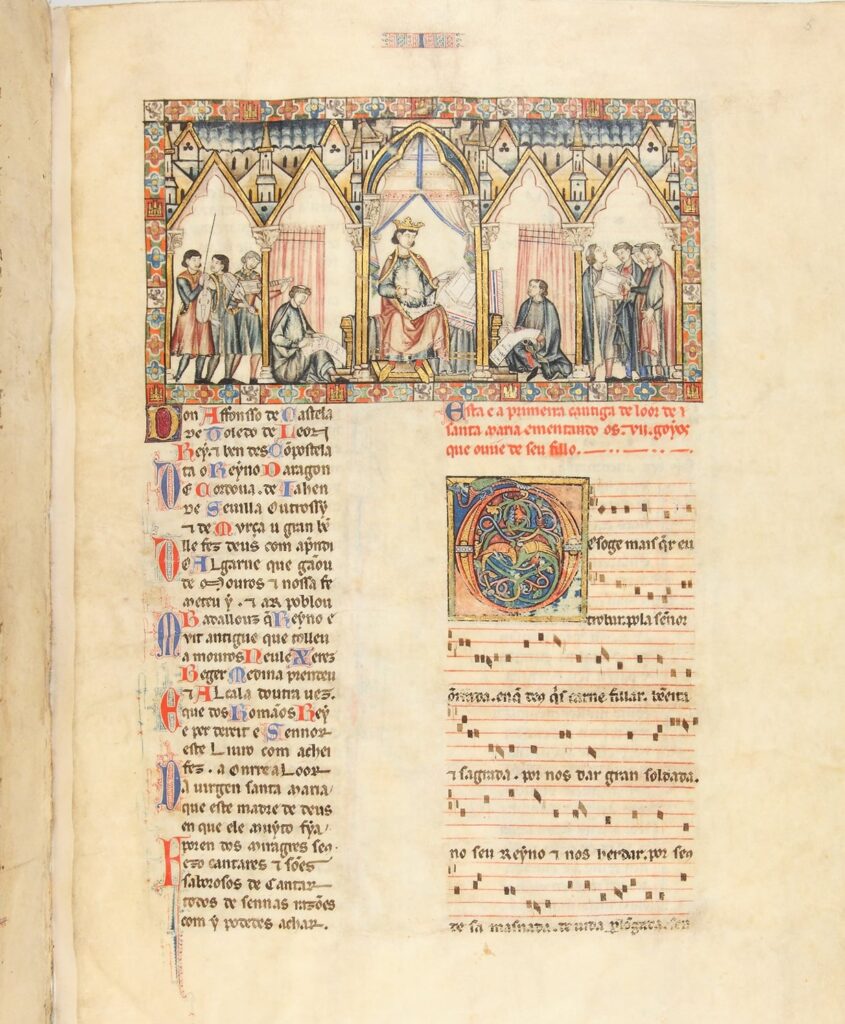 I
Don Affonsso de Castela
de Toledo de Leon
Rey ⁊ ben des Cõpostela
ta o Reyno Daragon
De Cordoua . de Iahen
de Seuilla Outrossy
⁊ de Murça u gran bẽ
lle fez deus com apndi
Do Algarue que gãou
de Mouros ⁊ nossa fe
meteu y . ⁊ ar poblou
Badallouz q̃ Reyno e
Muit antigue que tolleu
a mouros Neul e Xerez
Beger Medina prendeu
⁊ Alcala doutra uez.
E que dos Romãos Rey
e per dereit e Sennor
este Liuro com achei
fez . a Onrr e a Loor
Da uirgen santa maria
que este madre de deus
en que ele muyto fya.
poren dos miragres seus
Fezo cantares ⁊ sões
saborosos de Cantar
todos de sennas razões
com y podedes achar.
Esta e a primeira cantiga de loor de
santa maria ementando os . vii . goyos
que ouue de seu fillo.
Des oge mais q̃r eu
trobar. pola señor
õrrada. en q̃ deus q̇s carne fillar. bẽeita
⁊ sagrada . por nos dar gran soldada.
no seu Reyno ⁊ nos herdar. por seus
de sa masnada. de uida plõgada. sen